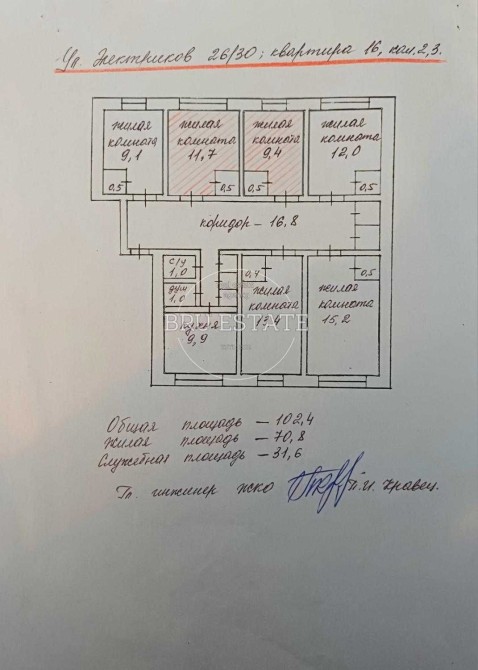 Ул. Электриков 26/30; квартира 16, ком. 2,3.
жилая комната 9,1
жилая комната 11,7
жилая комната 9,4
жилая комната 12,0
0,5
0,5
0,5
0,5
коридор – 16,8
с/у 1,0
душ 1,0
0,4
0,5
жилая комната 13,4
жилая комната 15,2
кухня 9,9
BPH ESTATE
Общая площадь – 102,4
Жилая площадь – 70,8
Служебная площадь – 31,6
Гл. инженер жско
П.И. Кравец.